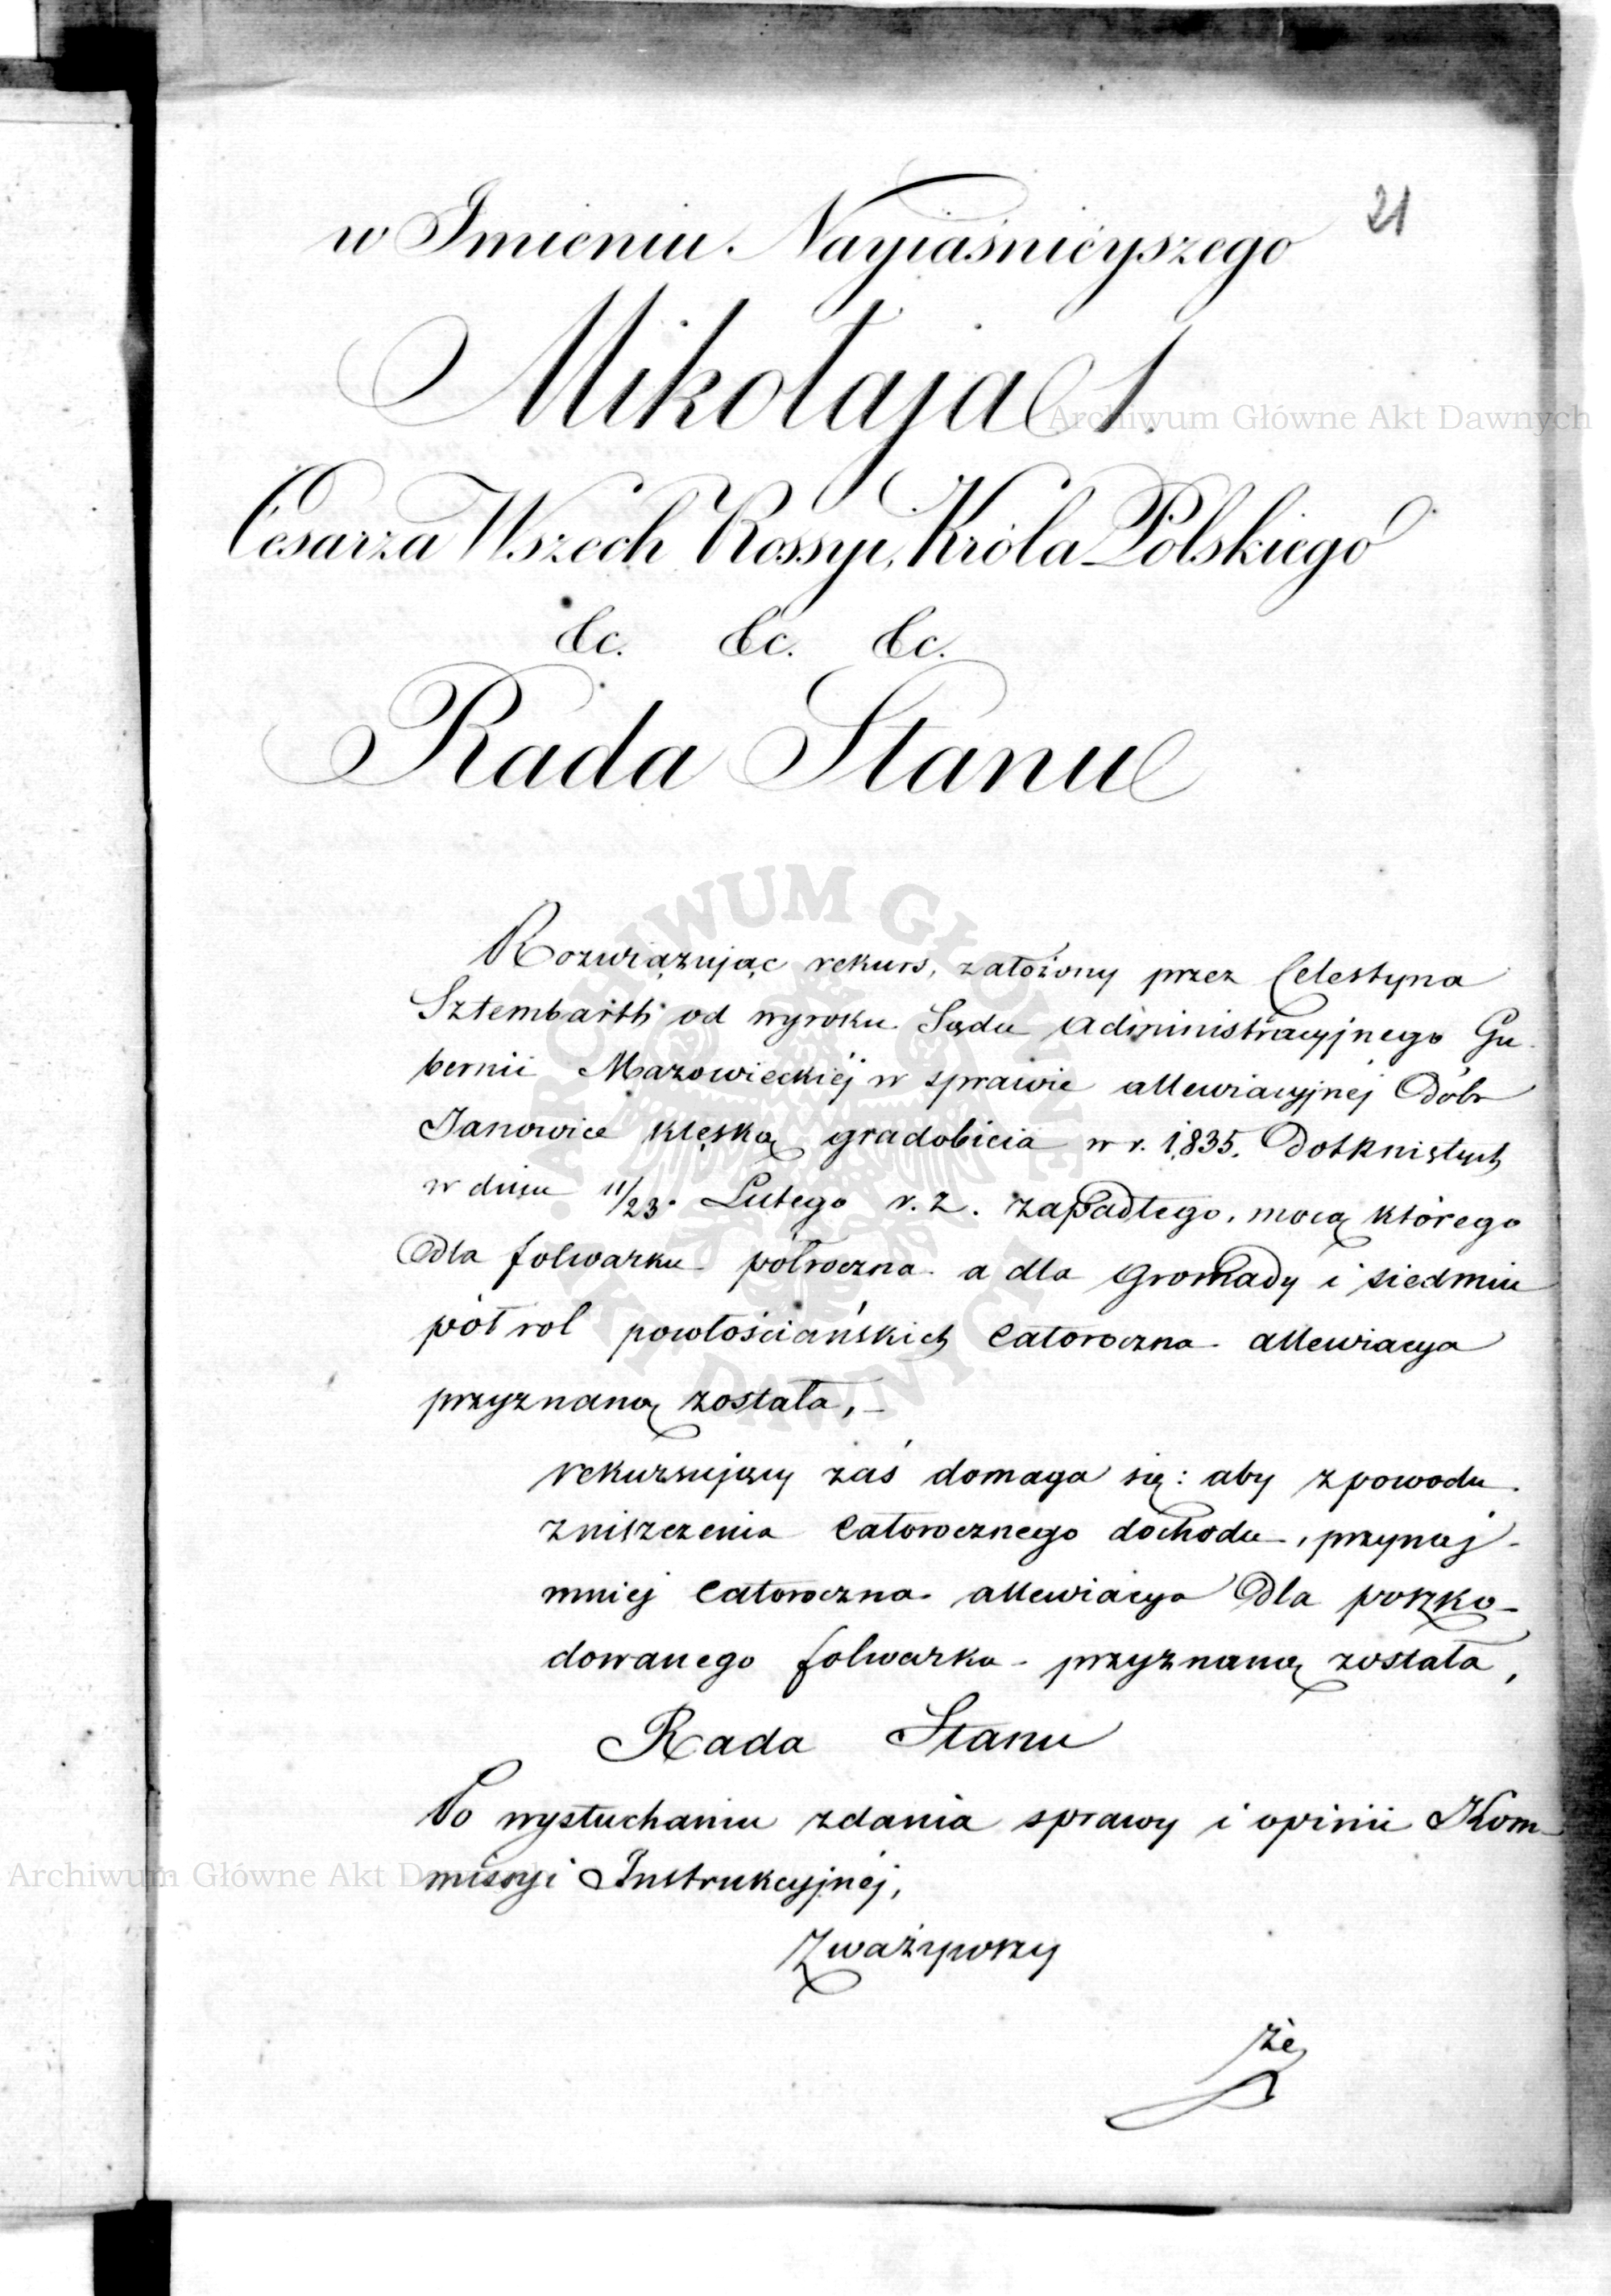 21
w Imieniu Nayiaśnieyszego
Mikołaja I.
Cesarza Wszech Rossyi, Króla Polskiego
&c. &c. &c.
Rada Stanu
Rozwiązując rekurs, założony przez Celestyna
Sztembarth od wyroku Sądu Administracyjnego Gu-
bernii Mazowieckiéj w sprawie allewiacyjnéj Dóbr
Janowice klęską gradobicia w r. 1835. Dotkniętych
w dniu 11/23. Lutego r. z. zapadłego, mocą którego
Dla folwarku półroczna a dla Gromady i siedmiu
pół rol powłościańskich całoroczna allewiacya
przyznaną została,
rekursujący zaś domaga się: aby z powodu
zniszczenia całorocznego dochodu, przynaj-
mniej całoroczna allewiacya Dla poszko-
dowanego folwarku przyznaną została,
Rada Stanu
Po wysłuchaniu zdania sprawy i opinii Kom-
missyi Instrukcyjnéj,
Zważywszy
że,
Archiwum Główne Akt Dawnych
ARCHIWUM GŁÓWNE AKT DAWNYCH
Archiwum Główne Akt Dawnych